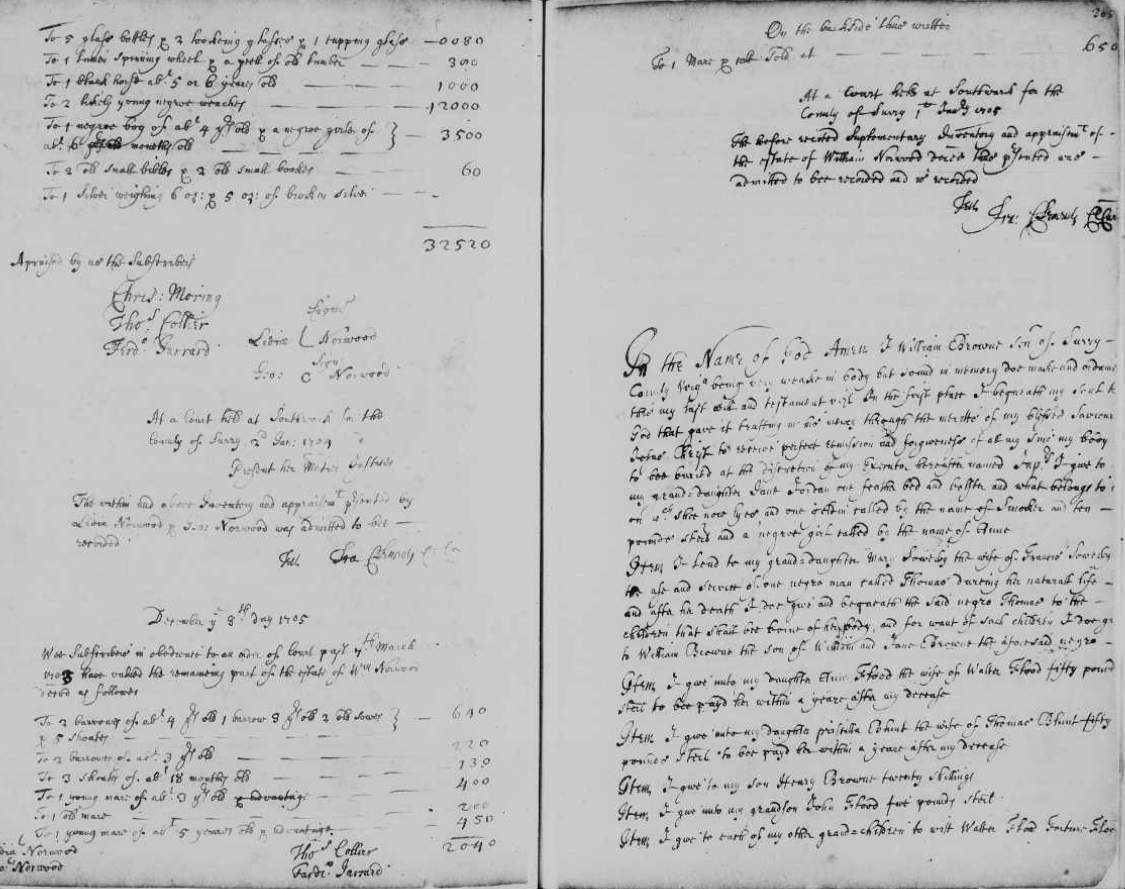 To 5 glass bottles p 2 looking glasses p 1 tupping glass —0080
To 1 linen spinning wheel p a pcell of old lumber — 300
To 1 black horse abt 5 or 6 years old — 1000
To 2 likely young negroe weaches — 12000
To 1 negroe boy of abt 4 yrs old p a negroe girle of } — 3500
abt 6 months old
To 2 old small bibles p 2 old small bookes — 60
To 1 Silver weighing 6 oz: p 5 oz: of broken silver —
32520
Apraised by us the Subscribers
Chris: Moring
Thos Collier
Ferdo: Jarrard
Signu
Lidia L Norwood
Sign
Geo: C Norwood
At a Court held at Southwark for the
County of Surry 2d Jan: 1704
Present her Maties Justices
The within and above Inventory and appraismt psented by
Lidia Norwood p Geo: Norwood was admitted to bee —
recorded
Test Fra Clements Cl Cur
December ye 8th day 1705
Wee Subscribers in obedience to an order of Court past 7th March
1703 have valued the remaineing part of the estate of Wm Norwood
decd as followes
To 2 barrows of abt 4 yrs old 1 barrow 3 yrs old 2 old sowes } — 640
p 5 shoates
To 2 barrowes of abt 3 yrs old — 220
To 3 shoates of abt 18 months old — 130
To 1 young mare of abt 3 yrs old p advantage — 400
To 1 old mare — 200
To 1 young mare of abt 5 years old p advantage — 450
2040
Lidia L Norwood
Geo: Norwood
Thos Collier
Fardi: Jarrard
265
On the backside thus written
To 1 Mare p colt Sold at — 650
At a Court held at Southwark for the
County of Surry 1st Jany 1705
The before recited Suplementary Inventory and appraismt of
the estate of William Norwood deced thus psented was —
admitted to bee recorded and is recorded
Test Fra: Clements Cl Cur
In the Name of God Amen I William Browne Senr of Surry —
County Virga being very weake in body but sound in memory doe make and ordaine
this my last will and testament vizt In the first place I bequeath my Soul to
God that gave it trusting in his mercy through the meritts of my blessed Saviour
Jesus Christ to receive perfect remission and forgiveness of all my Sins my body
to bee buried at the discretion of my Executor hereafter named Imps I give to
my grand=daughter Jane Jordan one feather bed and bolster and what belongs to it
on wch shee now lyes and one geldin called by the name of Smoker and ten —
pounds sterl and a negroe girl called by the name of Anne
Item I lend to my grand=daughter Mary Sowerby the wife of Francis Sowerby
the use and service of one negro man called Thomas dureing her naturall life —
and after her death I doe give and bequeath the said negro Thomas to the —
children that shall bee borne of her body, and for want of such children I doe gi
to William Browne the son of William and Jane Browne the aforesaid negro —
Item I give unto my daughter Ann Flood the wife of Walter Flood fifty pound
sterl to bee payd her within a yeare after my decease
Item I give unto my daughter priscilla Blunt the wife of Thomas Blunt fifty
pounds Sterl to bee payd her within a yeare after my decease
Item I give to my son Henry Browne twenty shillings
Item I give unto my grandson John Flood five pounds sterl
Item I give to each of my other grand=children to witt Walter Flood Fortune Floo